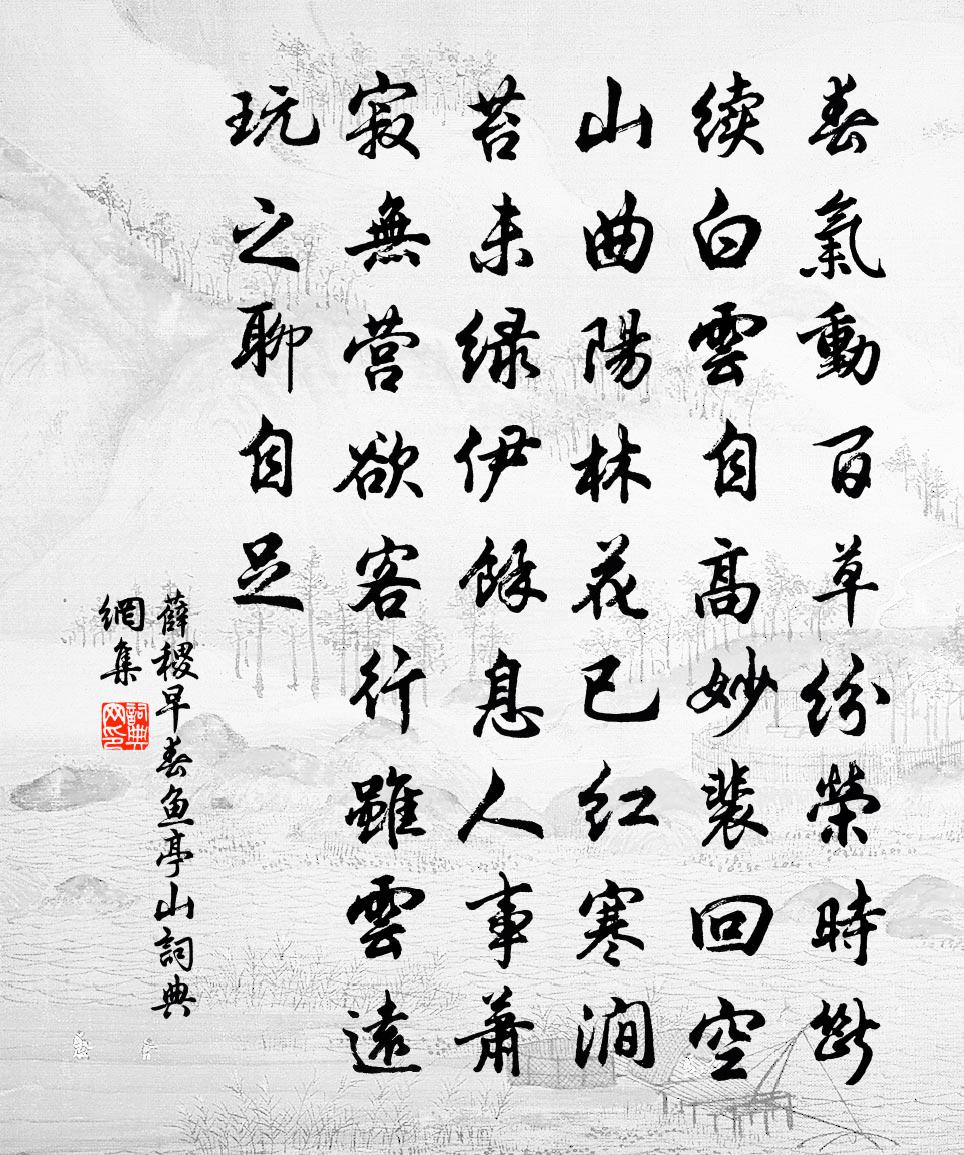 春氣動百草紛榮時斷
续白雲自高妙裴回空
山曲陽林花已红寒澗
苔未绿伊餘息人事蕭
寂無营欲客行雖雲遠
玩之聊自足
薛稷早春鱼亭山詞典
網集
詞典网印